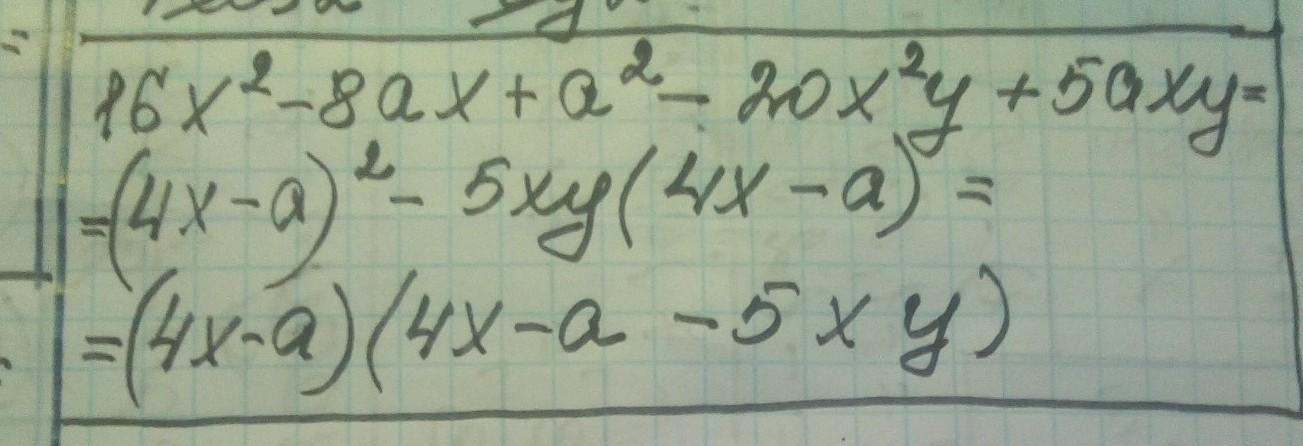 16x² - 8ax + a² - 20x²y + 5axy =
= (4x - a)² - 5xy(4x - a) =
= (4x - a)(4x - a - 5xy)